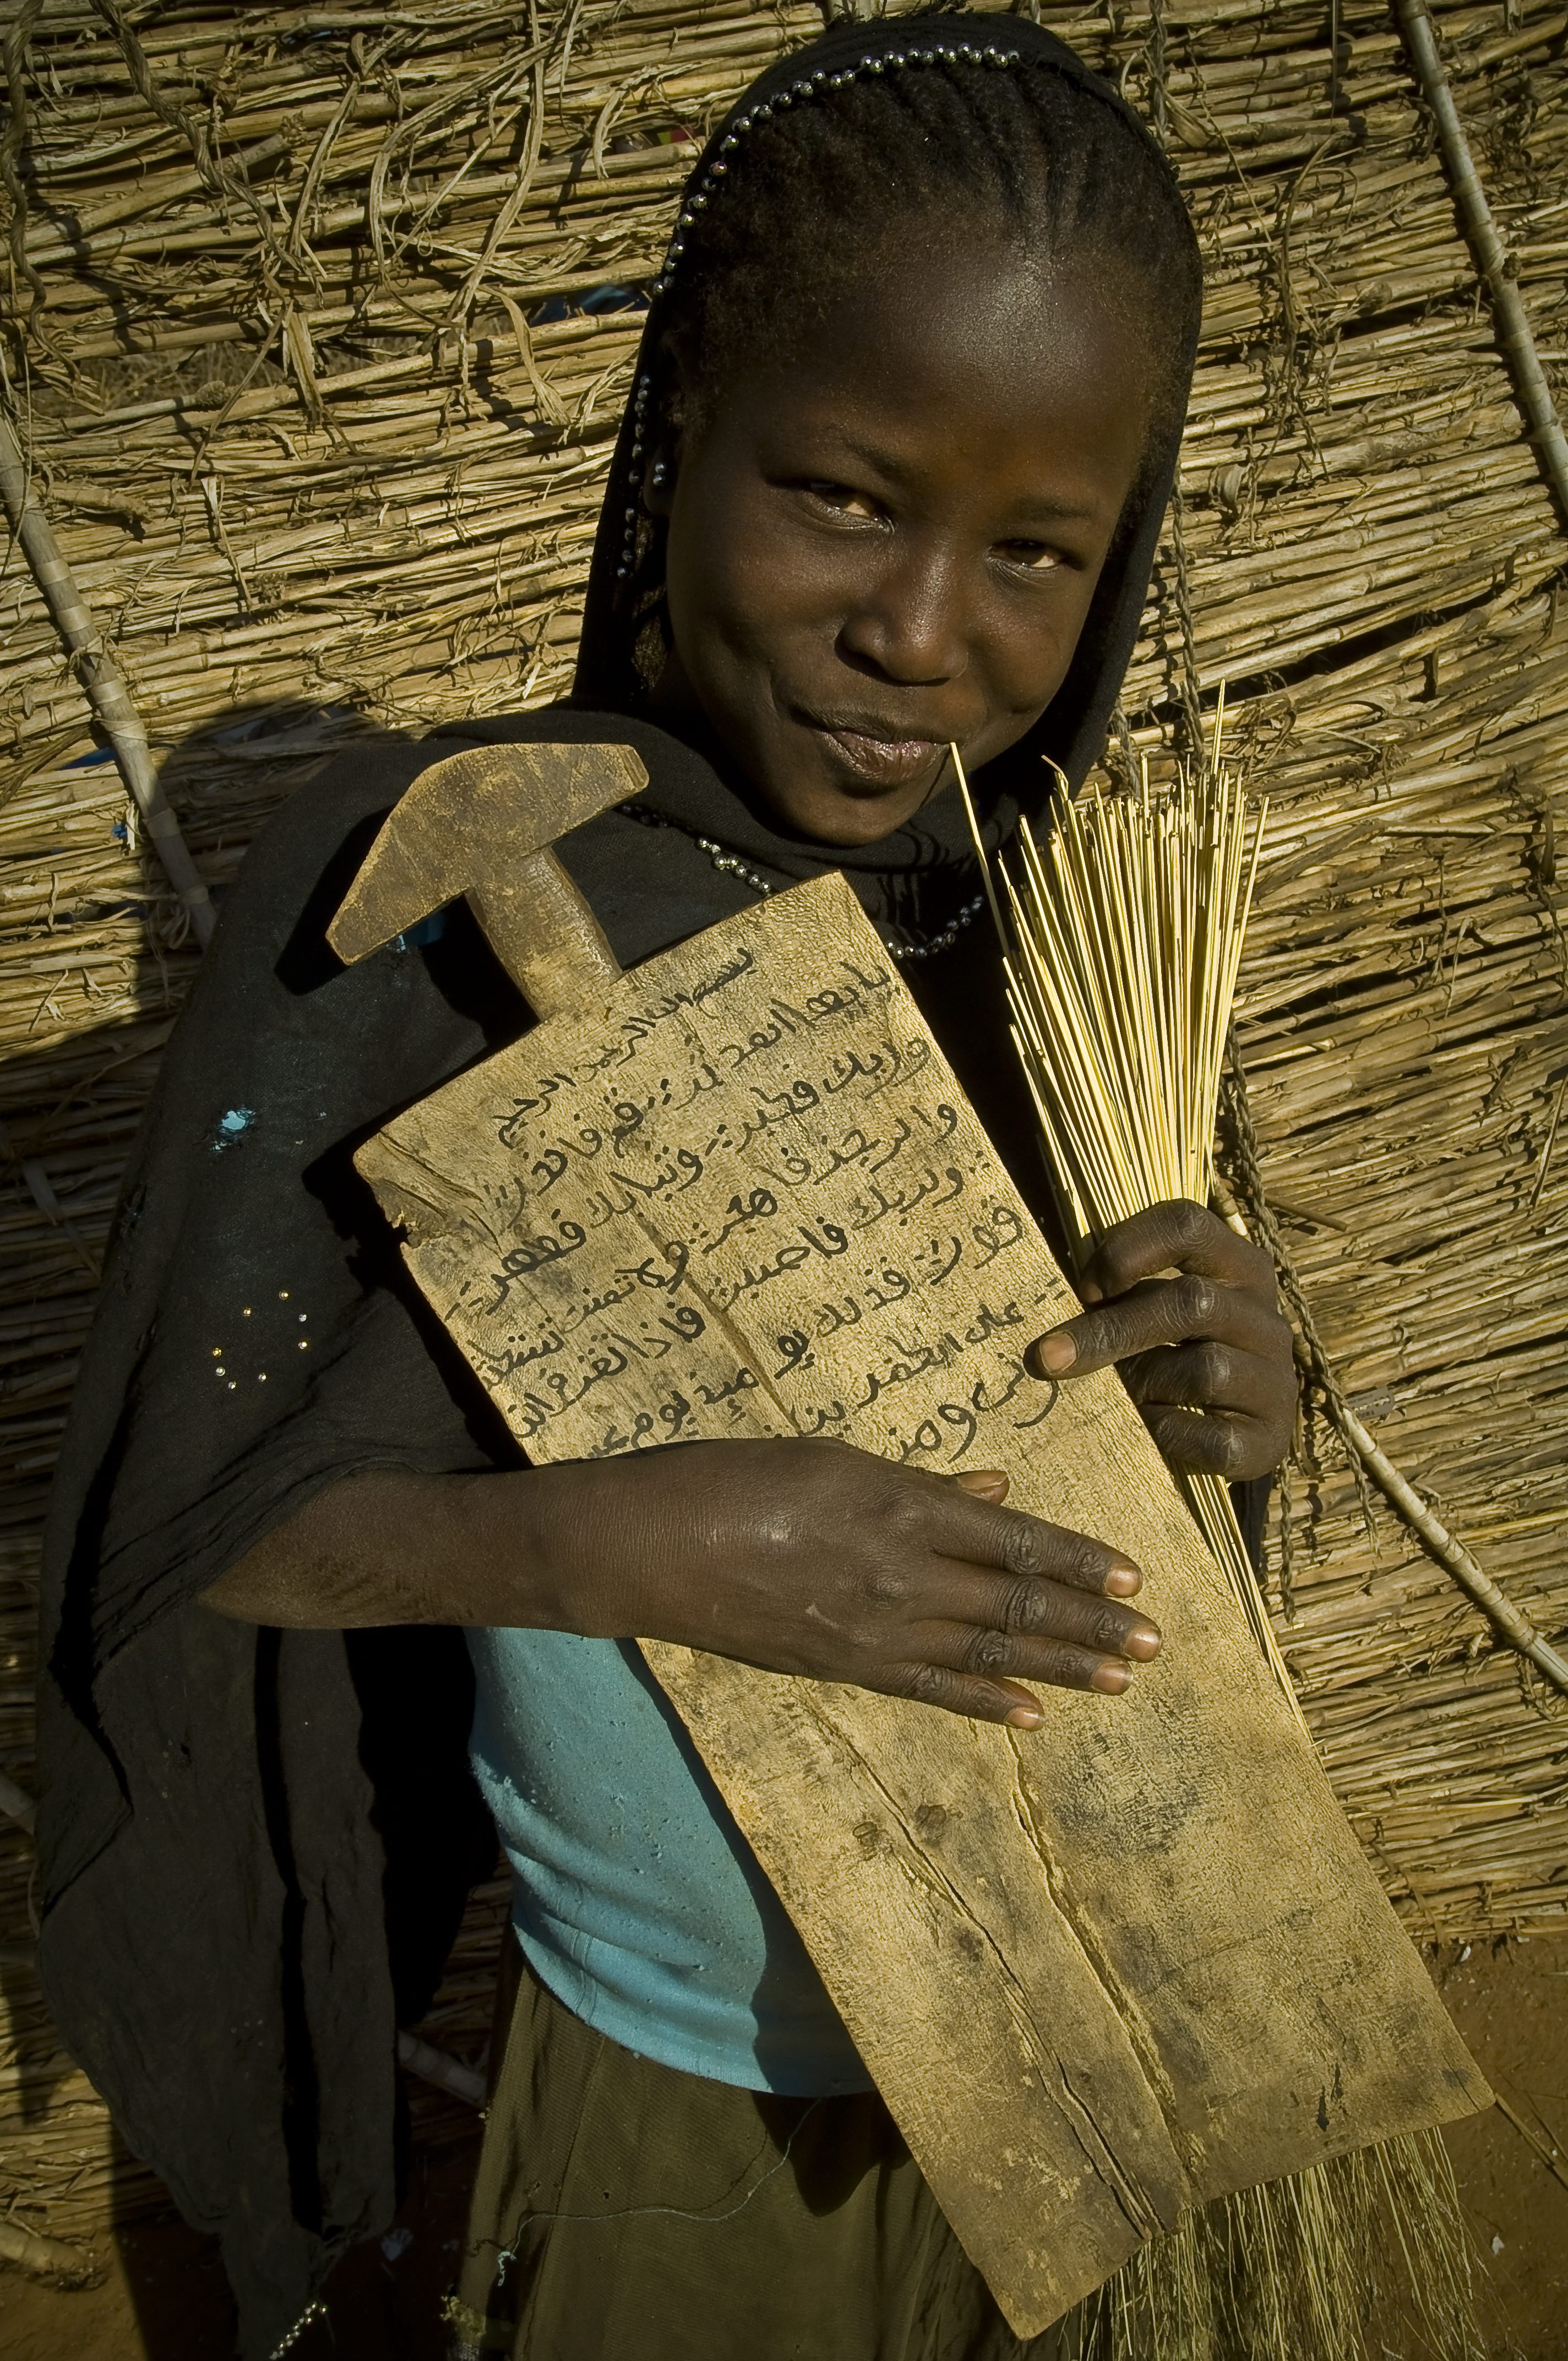 بسم الله الرحمن الرحيم
يايها المدثر قم فانذر
وربك فكبر وثيابك فطهر
والرجز فاهجر ولا تمنن تستكثر
ولربك فاصبر فاذا نقر في النا
قور فذلك يومئذ يوم عسير
على الكفرين
ومن